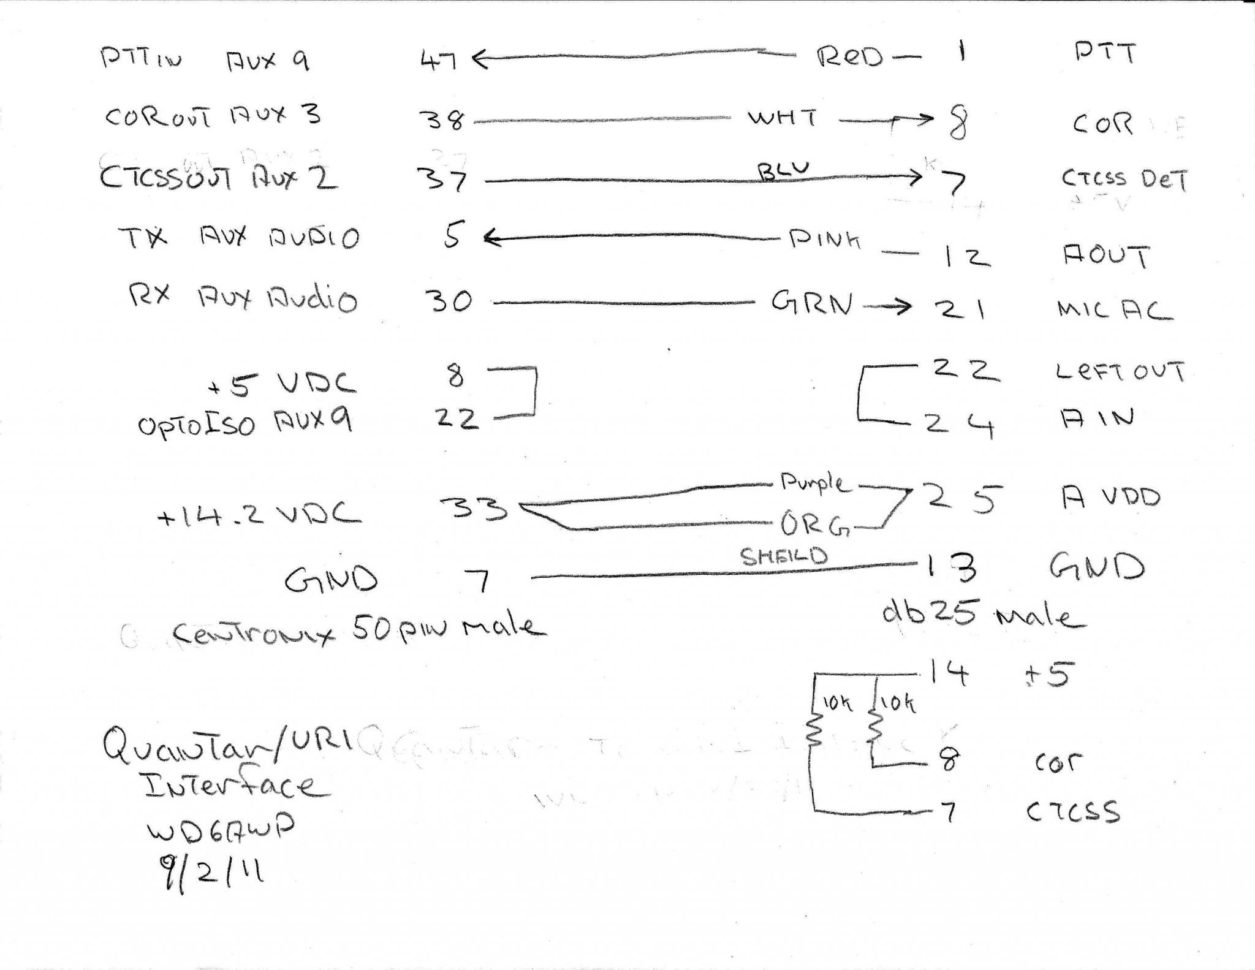 PTT IN AUX 9 47 RED 1 PTT
COR OUT AUX 3 38 WHT 8 COR
CTCSS OUT AUX 2 37 BLU 7 CTCSS DET
TX AUX AUDIO 5 PINK 12 AOUT
RX AUX Audio 30 GRN 21 MIC AC
+5 VDC 8 22 LEFT OUT
OPTOISO AUX 9 22 24 A IN
+14.2 VDC 33 Purple 25 A VDD
ORG
GND 7 SHEILD 13 GND
Centronix 50 pin male db25 male
14 +5
10K 10K
8 COR
7 CTCSS
Quantar/URI
Interface
WD6AWP
9/2/11